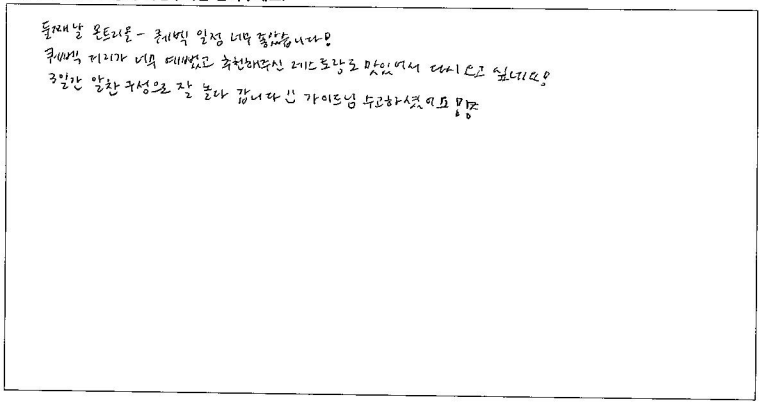 둘째날 몬트리올 - 퀘벡 일정 너무 좋았습니다!
퀘벡 거리가 너무 예뻤고 추천해주신 레스토랑도 맛있어서 다시 오고 싶네요!
3일간 알찬 구성으로 잘 놀다 갑니다 :) 가이드님 수고하셨어요